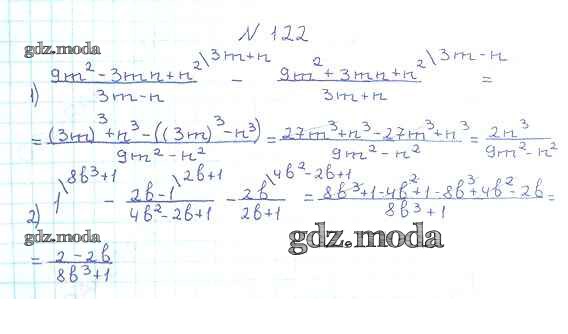 N 122
gdz.moda
1) (9m² - 3mn + n²)/(3m - n) \3m+n - (9m² + 3mn + n²)/(3m + n) \3m-n =
= ((3m)³ + n³ - ((3m)³ - n³))/(9m² - n²) = (27m³ + n³ - 27m³ + n³)/(9m² - n²) = 2n³/(9m² - n²)
2) 1 \8b³+1 - (2b-1)/(4b² - 2b + 1) \2b+1 - 2b/(2b+1) \4b²-2b+1 = (8b³ + 1 - 4b² + 1 - 8b³ + 4b² - 2b)/(8b³ + 1) =
gdz.moda
gdz.moda
= (2 - 2b)/(8b³ + 1)